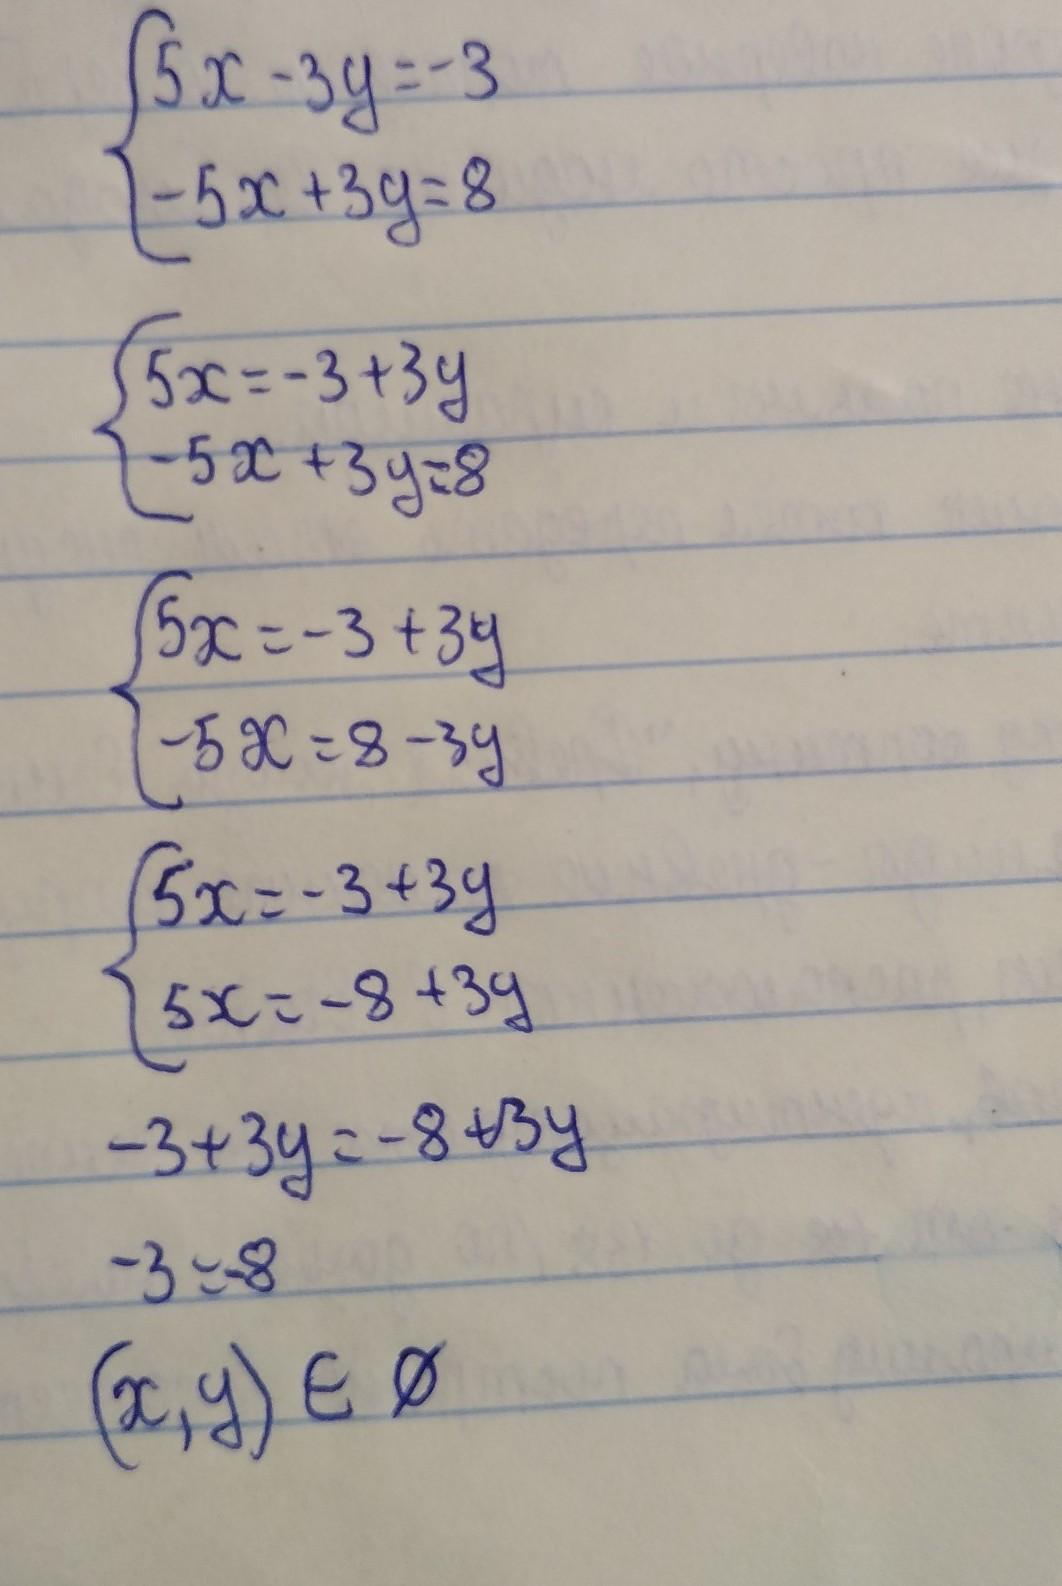 5x - 3y = -3
-5x + 3y = 8
5x = -3 + 3y
-5x + 3y = 8
5x = -3 + 3y
-5x = 8 - 3y
5x = -3 + 3y
5x = -8 + 3y
-3 + 3y = -8 + 3y
-3 = -8
(x, y) ∈ Ø